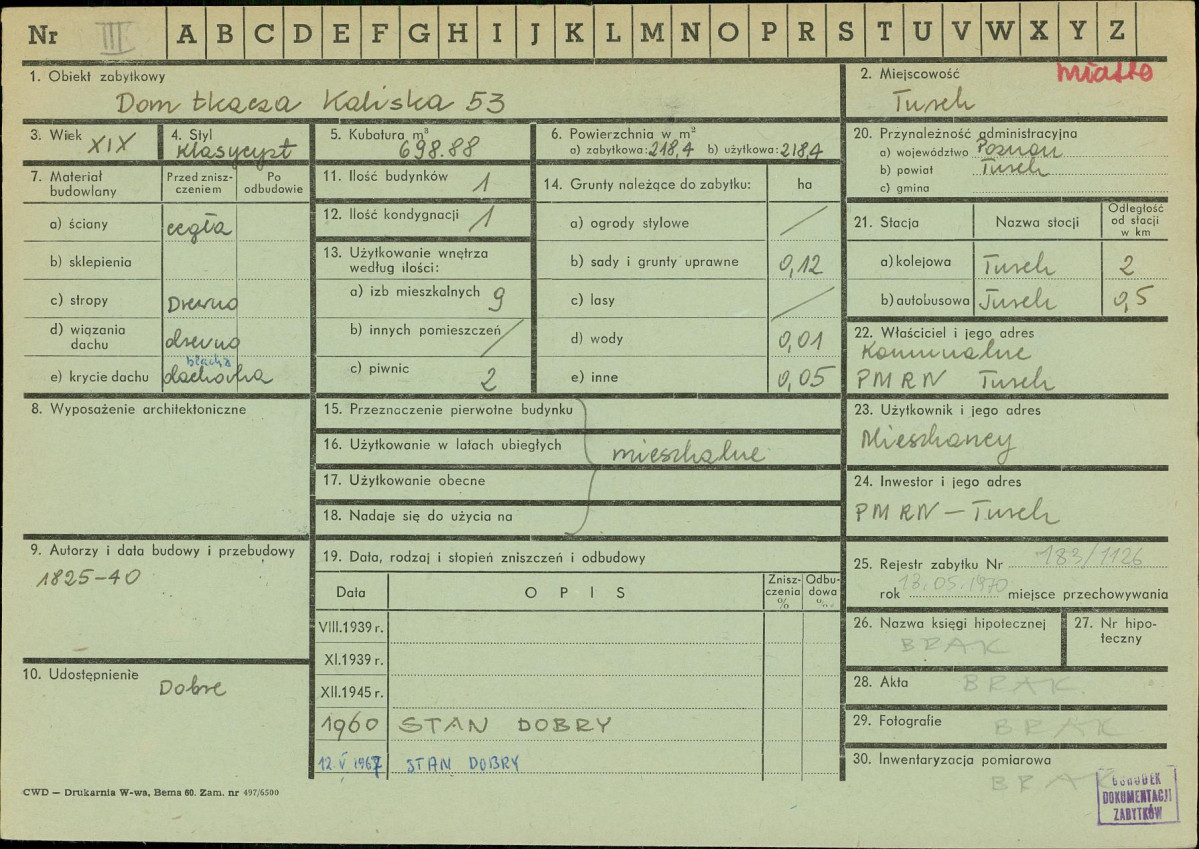 Nr III A B C D E F G H I J K L M N O P R S T U V W X Y Z
1. Obiekt zabytkowy
Dom tkacza Kaliska 53
2. Miejscowość miasto
Turek
3. Wiek XIX
4. Styl klasycyst
5. Kubatura m³ 698.88
6. Powierzchnia w m²
a) zabytkowa: 218,4 b) użytkowa: 218,4
20. Przynależność administracyjna
a) województwo Poznań
b) powiat Turek
c) gmina
7. Materiał budowlany
Przed zniszczeniem
Po odbudowie
a) ściany cegła
b) sklepienia
c) stropy Drewno
d) wiązania dachu drewno
blacha
e) krycie dachu dachówka
11. Ilość budynków 1
12. Ilość kondygnacji 1
13. Użytkowanie wnętrza według ilości:
a) izb mieszkalnych 9
b) innych pomieszczeń /
c) piwnic 2
14. Grunty należące do zabytku: ha
a) ogrody stylowe /
b) sady i grunty uprawne 0,12
c) lasy /
d) wody 0,01
e) inne 0,05
21. Stacja Nazwa stacji Odległość od stacji w km
a) kolejowa Turek 2
b) autobusowa Turek 0,5
22. Właściciel i jego adres
Komunalne
PMRN Turek
8. Wyposażenie architektoniczne
15. Przeznaczenie pierwotne budynku
16. Użytkowanie w latach ubiegłych mieszkalne
17. Użytkowanie obecne
18. Nadaje się do użycia na
23. Użytkownik i jego adres
Mieszkańcy
24. Inwestor i jego adres
PMRN – Turek
9. Autorzy i data budowy i przebudowy
1825-40
19. Data, rodzaj i stopień zniszczeń i odbudowy
Data OPIS Zniszczenia % Odbudowa %
VIII.1939 r.
XI.1939 r.
XII.1945 r.
1960 STAN DOBRY
12 V 1967 STAN DOBRY
25. Rejestr zabytku Nr 183/1126
rok 13.05.1970 miejsce przechowywania
26. Nazwa księgi hipotecznej
BRAK
27. Nr hipoteczny
10. Udostępnienie
Dobre
28. Akta BRAK
29. Fotografie BRAK
30. Inwentaryzacja pomiarowa
BRAK
CWD — Drukarnia W-wa, Bema 60. Zam. nr 497/6500
OŚRODEK
DOKUMENTACJI
ZABYTKÓW